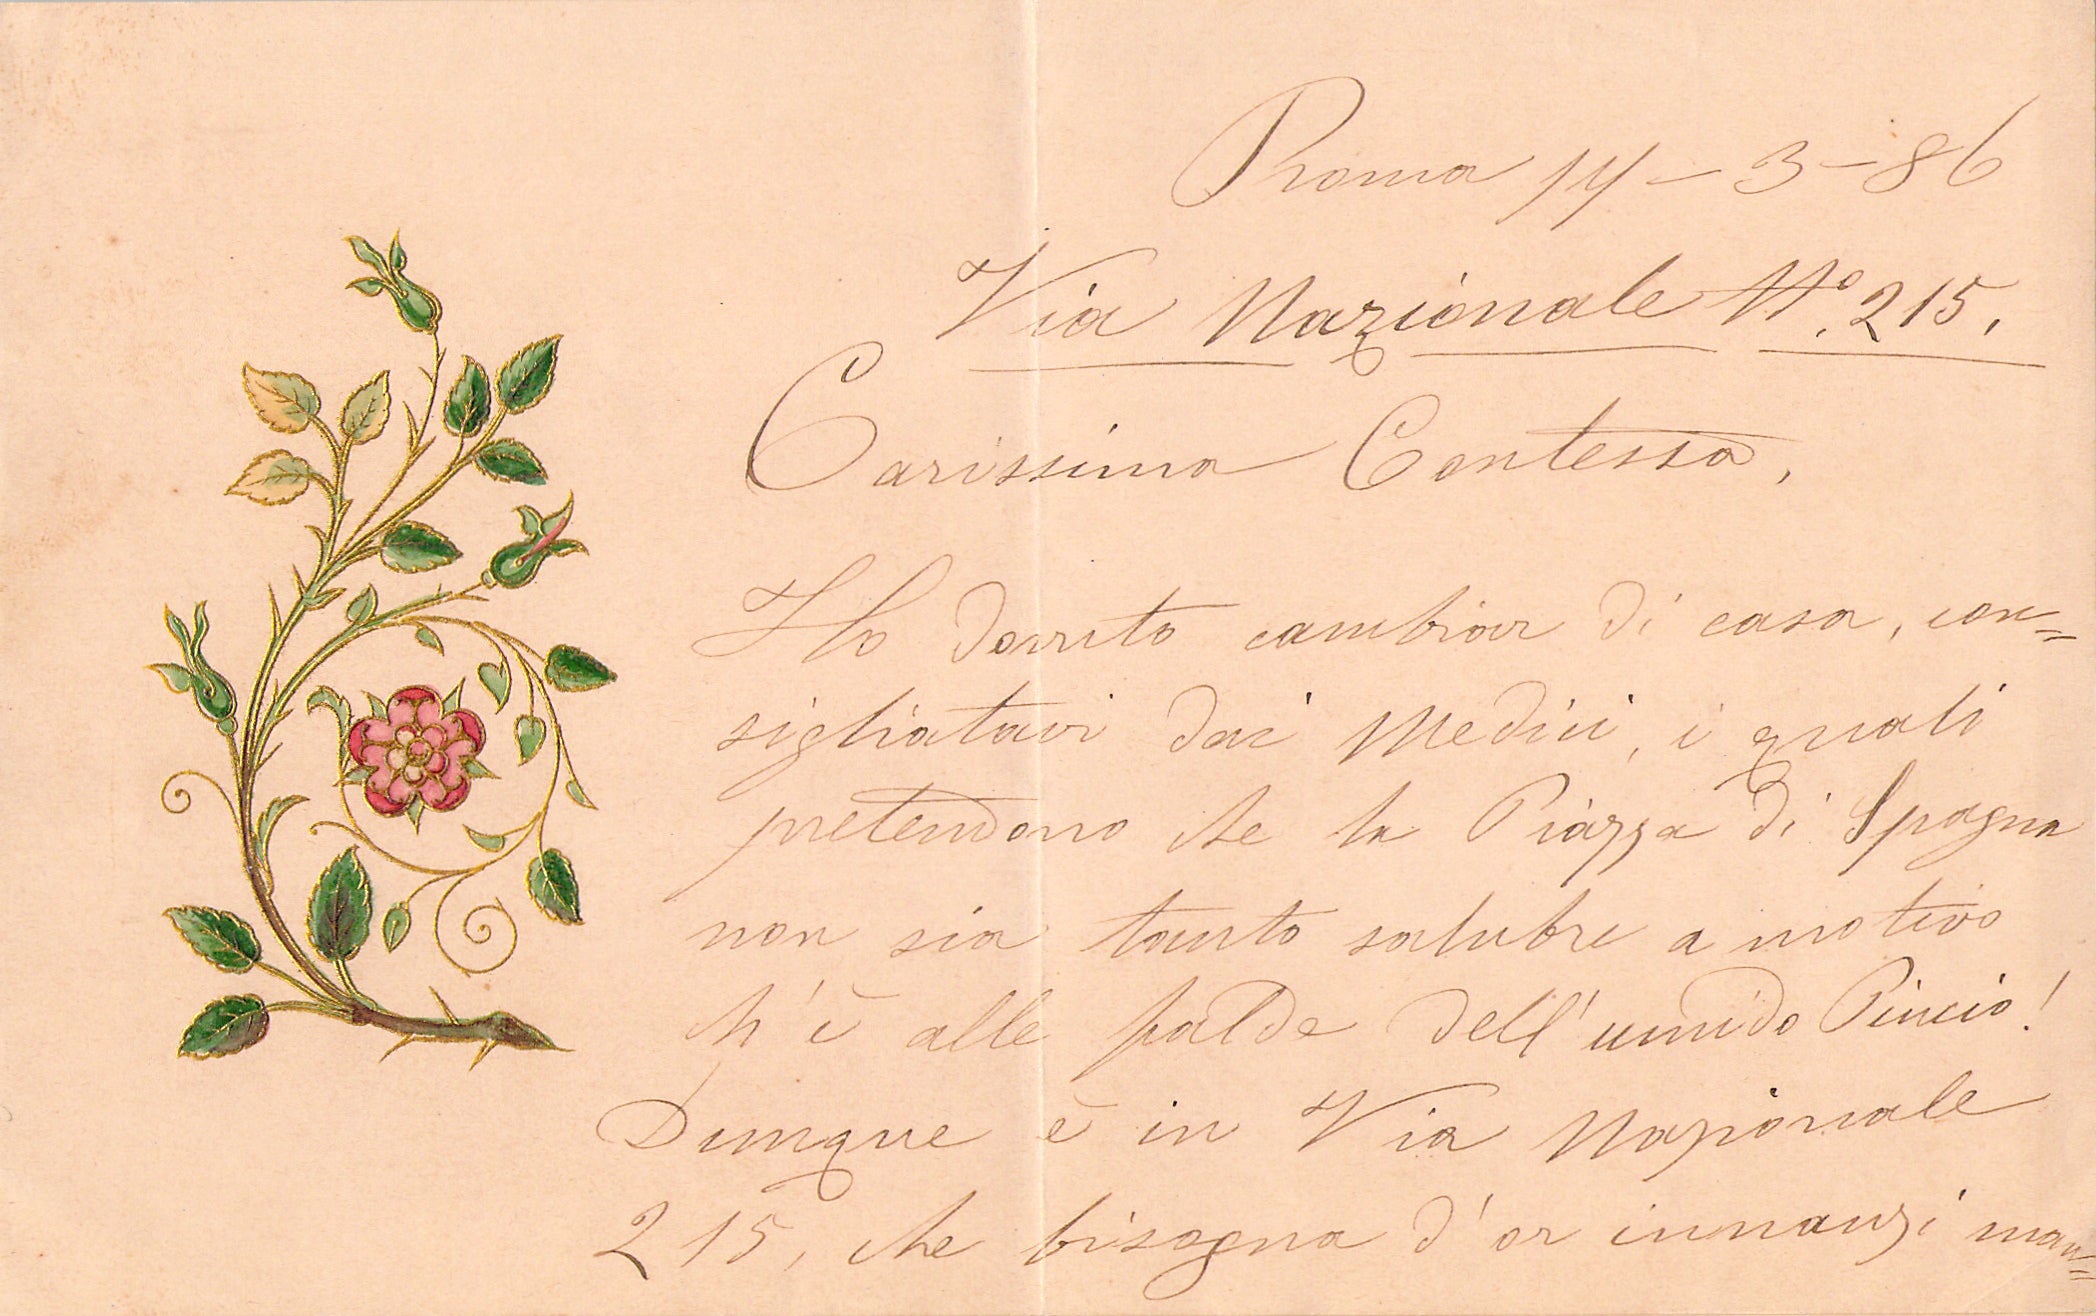 Roma 14-3-86
Via Nazionale No. 215.
Carissima Contessa,
Ho dovuto cambiar di casa, con=
sigliatavi dai Medici, i quali
pretendono che la Piazza di Spagna
non sia tanto salubre a motivo
ch'è alle falde dell'umido Pincio!
Dunque è in Via Nazionale
215, che bisogna d'or innanzi man=